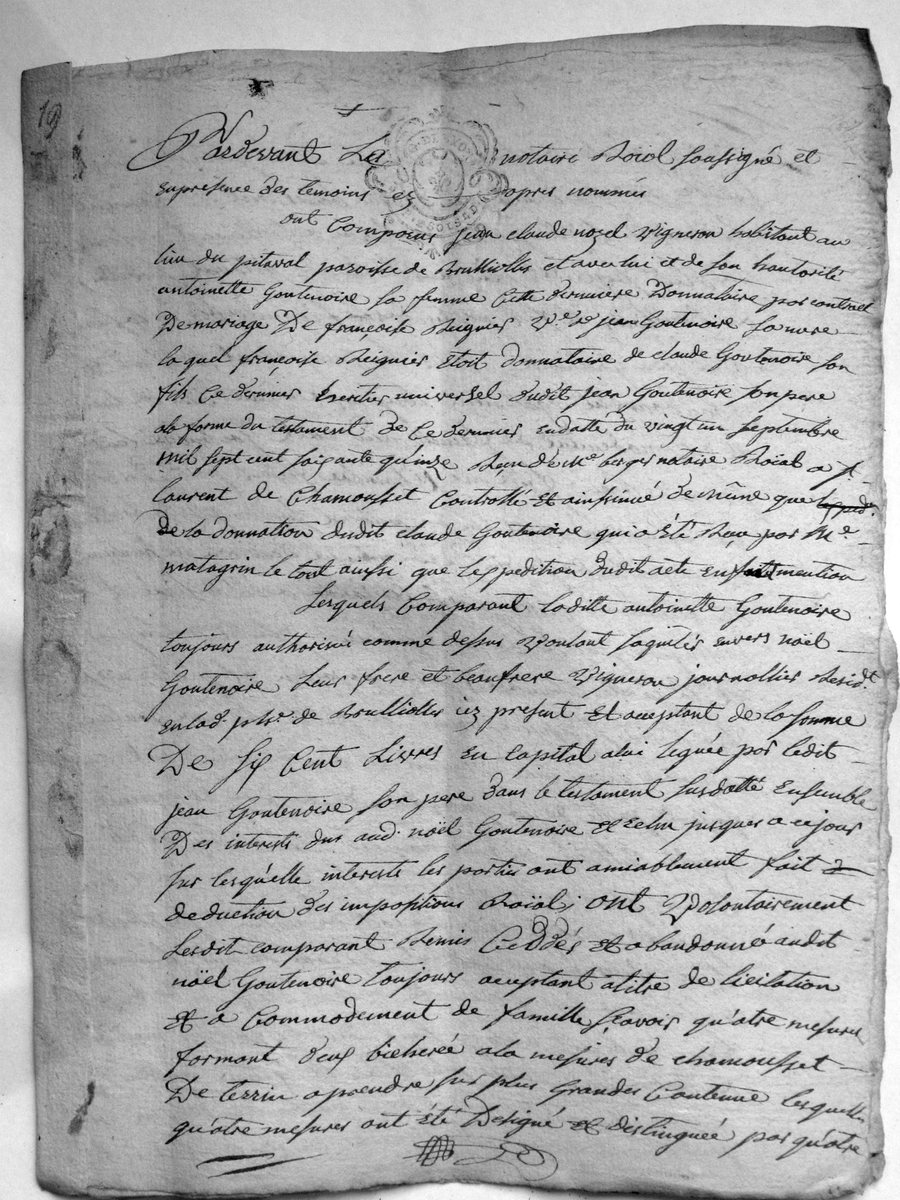 19
Pardevant Le notaire Roïal soussigné et
en presence des temoins cy apres nommés
ont Comparus jean claude nozel vigneron habitant au
lieu du pitaval paroisse de Brulliolles et avec lui et de son hautorité
antoinette Goutenoire sa femme Cette derniere Donnataire par contrat
De mariage De françoise Reignier Ve. de jean Goutenoire sa mere
laquel françoise Reignier Etoit donnataire de claude Goutenoire son
fils Ce dernier heritier universel dudit jean Goutenoire son pere
a la forme du testament De Ce dernier en datte du vingt un septembre
mil sept cent soixante quinze Reçu de Me. berger notaire Roïal a St.
laurent de Chamousset Controllé Et ainssinué De même que
De la donnation dudit claude Goutenoire qui a Eté Reçu par Me.
matagrin le tout ainsi que l'expedition dudit acte en fait mention
Lesquels Comparant Laditte antoinette Goutenoire
toujours authorisée comme dessus Voulant saquités envers noël
Goutenoire Leur frere et beaufrere Vigneron journallier Residt.
en lad. psse. de Brulliolles icy present Et aceptant de la somme
De six Cent Livres En Capital a lui leguée par Ledit
jean Goutenoire son pere Dans le testament susdatté Ensemble
Des interests dus aud. noël Goutenoire Et Echu jusques a ce jour
sur lesquelle interests les parties ont amiablement fait
deduction des impositions Roïal; ont Volontairement
Lesdit comparant Remis Ceddés Et abandonné audit
noël Goutenoire toujours aceptant a titre de licitation
Et a Commodement de famille sçavoir quatre mesure
formant deux bicherée a la mesures de chamousset
De terrin a prendre sur plus Grandes Contenue lesquelle
quatre mesures ont été Designé et distinguée par quatre